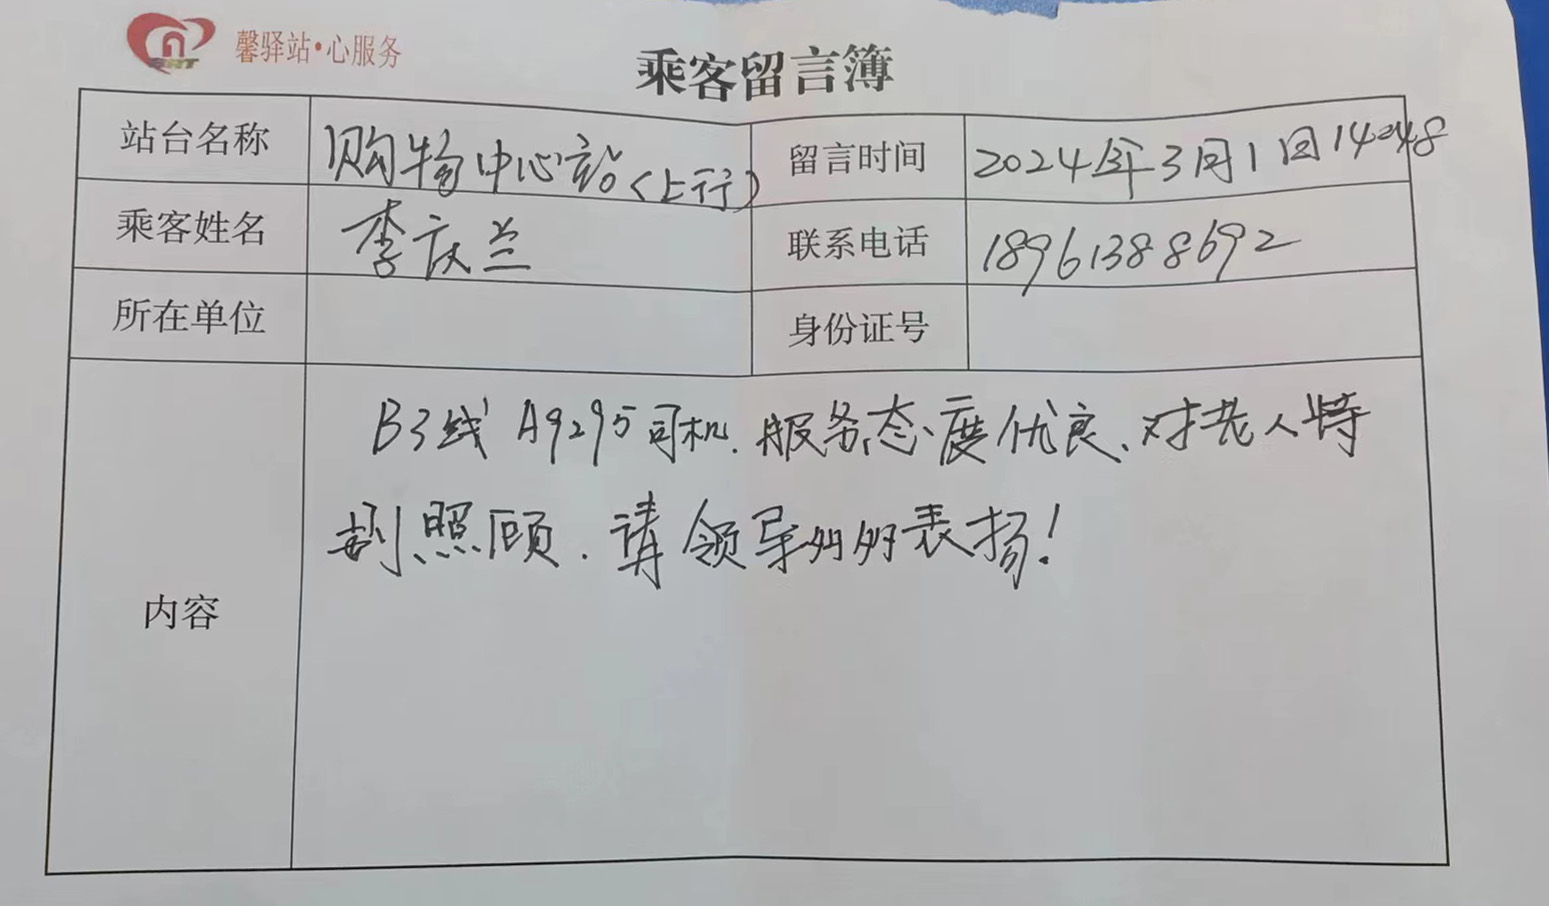 BRT 馨驿站·心服务
乘客留言簿
站台名称 购物中心站(上行) 留言时间 2024年3月1日14:48
乘客姓名 李庆兰 联系电话 18961388692
所在单位 身份证号
内容
B3线 A9295司机.服务态度优良、对老人特
别照顾.请领导多多表扬!